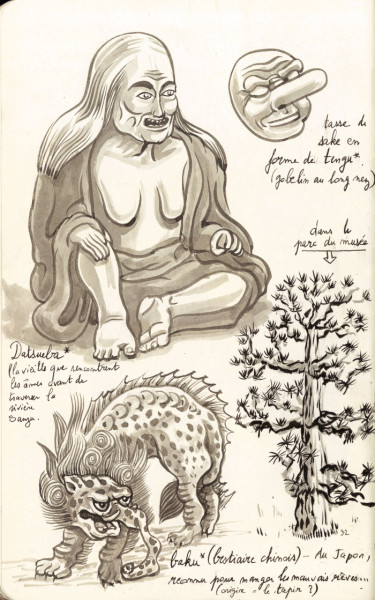 tasse de
sake en
forme de tengu*
(gobelin au long nez)
dans le
parc du musée
Datsueba*
la vieille que rencontrent
les âmes avant de
traverser la
rivière
Sanzu.
baku* (bestiaire chinois). Au Japon,
reconnu pour manger les mauvais rêves...
(origine = le tapir ?)